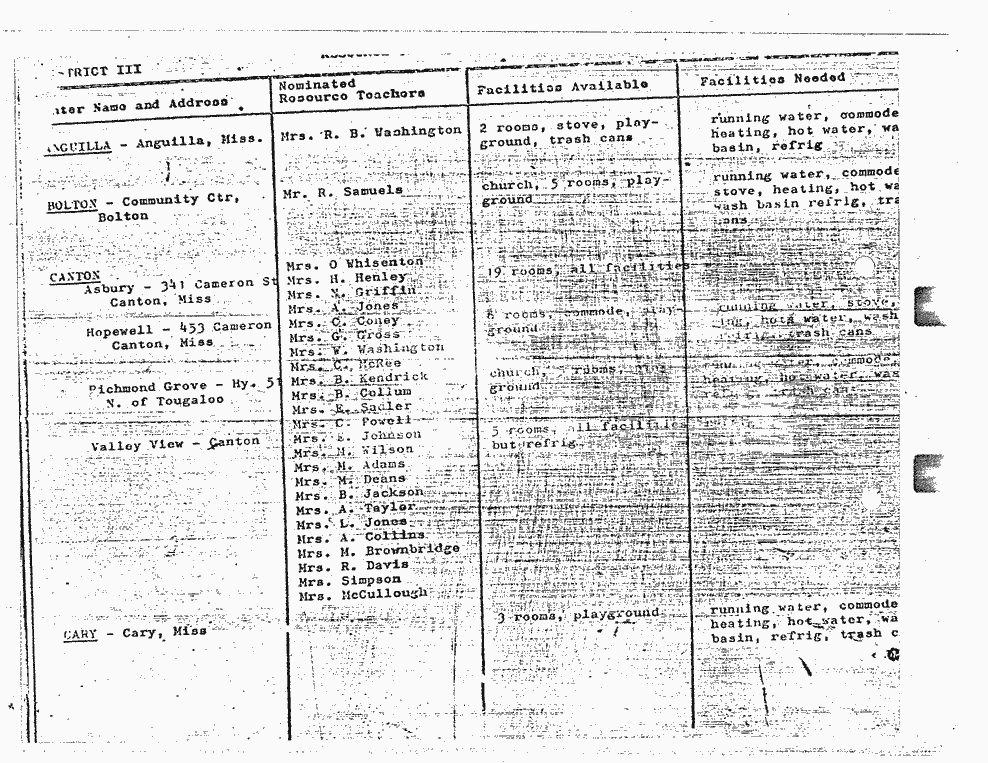 TRICT III
Name and Address
Nominated
Resource Teachers
Facilities Available
Facilities Needed
ANGUILLA - Anguilla, Miss.
Mrs. R. B. Washington
2 rooms, stove, play-
ground, trash cans
running water, commode
heating, hot water, wa
basin, refrig
BOLTON - Community Ctr,
Bolton
Mr. R. Samuels
church, 5 rooms, play-
ground
running water, commode
stove, heating, hot wa
wash basin refrig, tra
cans
CANTON
Asbury - 341 Cameron St
Canton, Miss
Hopewell - 453 Cameron
Canton, Miss
Richmond Grove - Hy. 51
N. of Tougaloo
Valley View - Canton
Mrs. O Whisenton
Mrs. H. Henley
Mrs. N. Griffin
Mrs. A. Jones
Mrs. C. Coney
Mrs. G. Gross
Mrs. W. Washington
Mrs. C. McRee
Mrs. B. Kendrick
Mrs. B. Collum
Mrs. E. Sadler
Mrs. C. Powell
Mrs. E. Johnson
Mrs. M. Wilson
Mrs. M. Adams
Mrs. M. Deans
Mrs. B. Jackson
Mrs. A. Taylor
Mrs. L. Jones
Mrs. A. Collins
Mrs. M. Brownbridge
Mrs. R. Davis
Mrs. Simpson
Mrs. McCullough
19 rooms, all facilities
rooms, commode, play-
ground
church, rooms,
ground
5 rooms, all facilities
but refrig
running water, stove,
hot water, wash
trash cans
water, commode,
heating, hot water, was
CARY - Cary, Miss
3 rooms, playground
running water, commode
heating, hot water, wa
basin, refrig, trash c